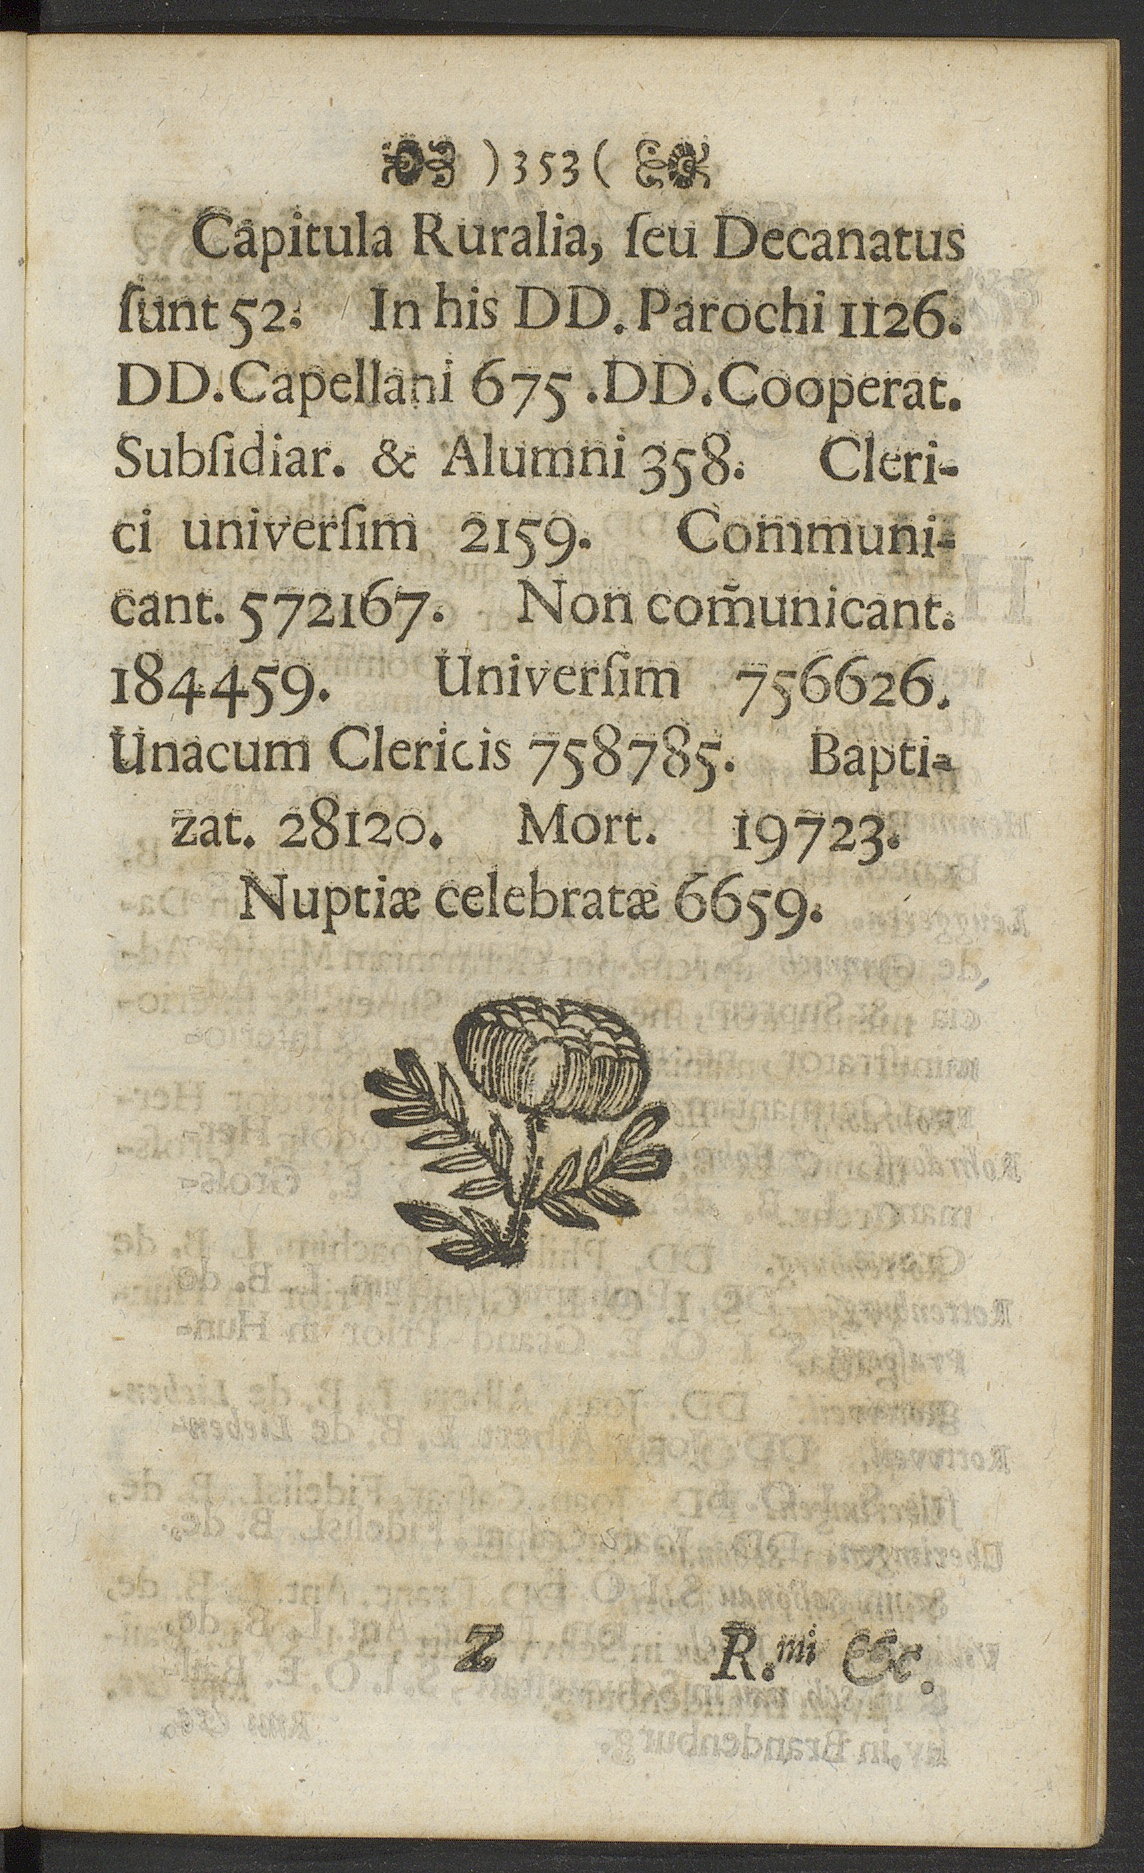 )353(
Capitula Ruralia, ſeu Decanatus
ſunt 52. In his DD. Parochi 1126.
DD. Capellani 675. DD. Cooperat.
Subſidiar. & Alumni 358. Cleri-
ci univerſim 2159. Communi-
cant. 572167. Non com̃unicant.
184459. Univerſim 756626.
Unacum Clericis 758785. Bapti-
zat. 28120. Mort. 19723.
Nuptiæ celebratæ 6659.
Z R.mi &c.